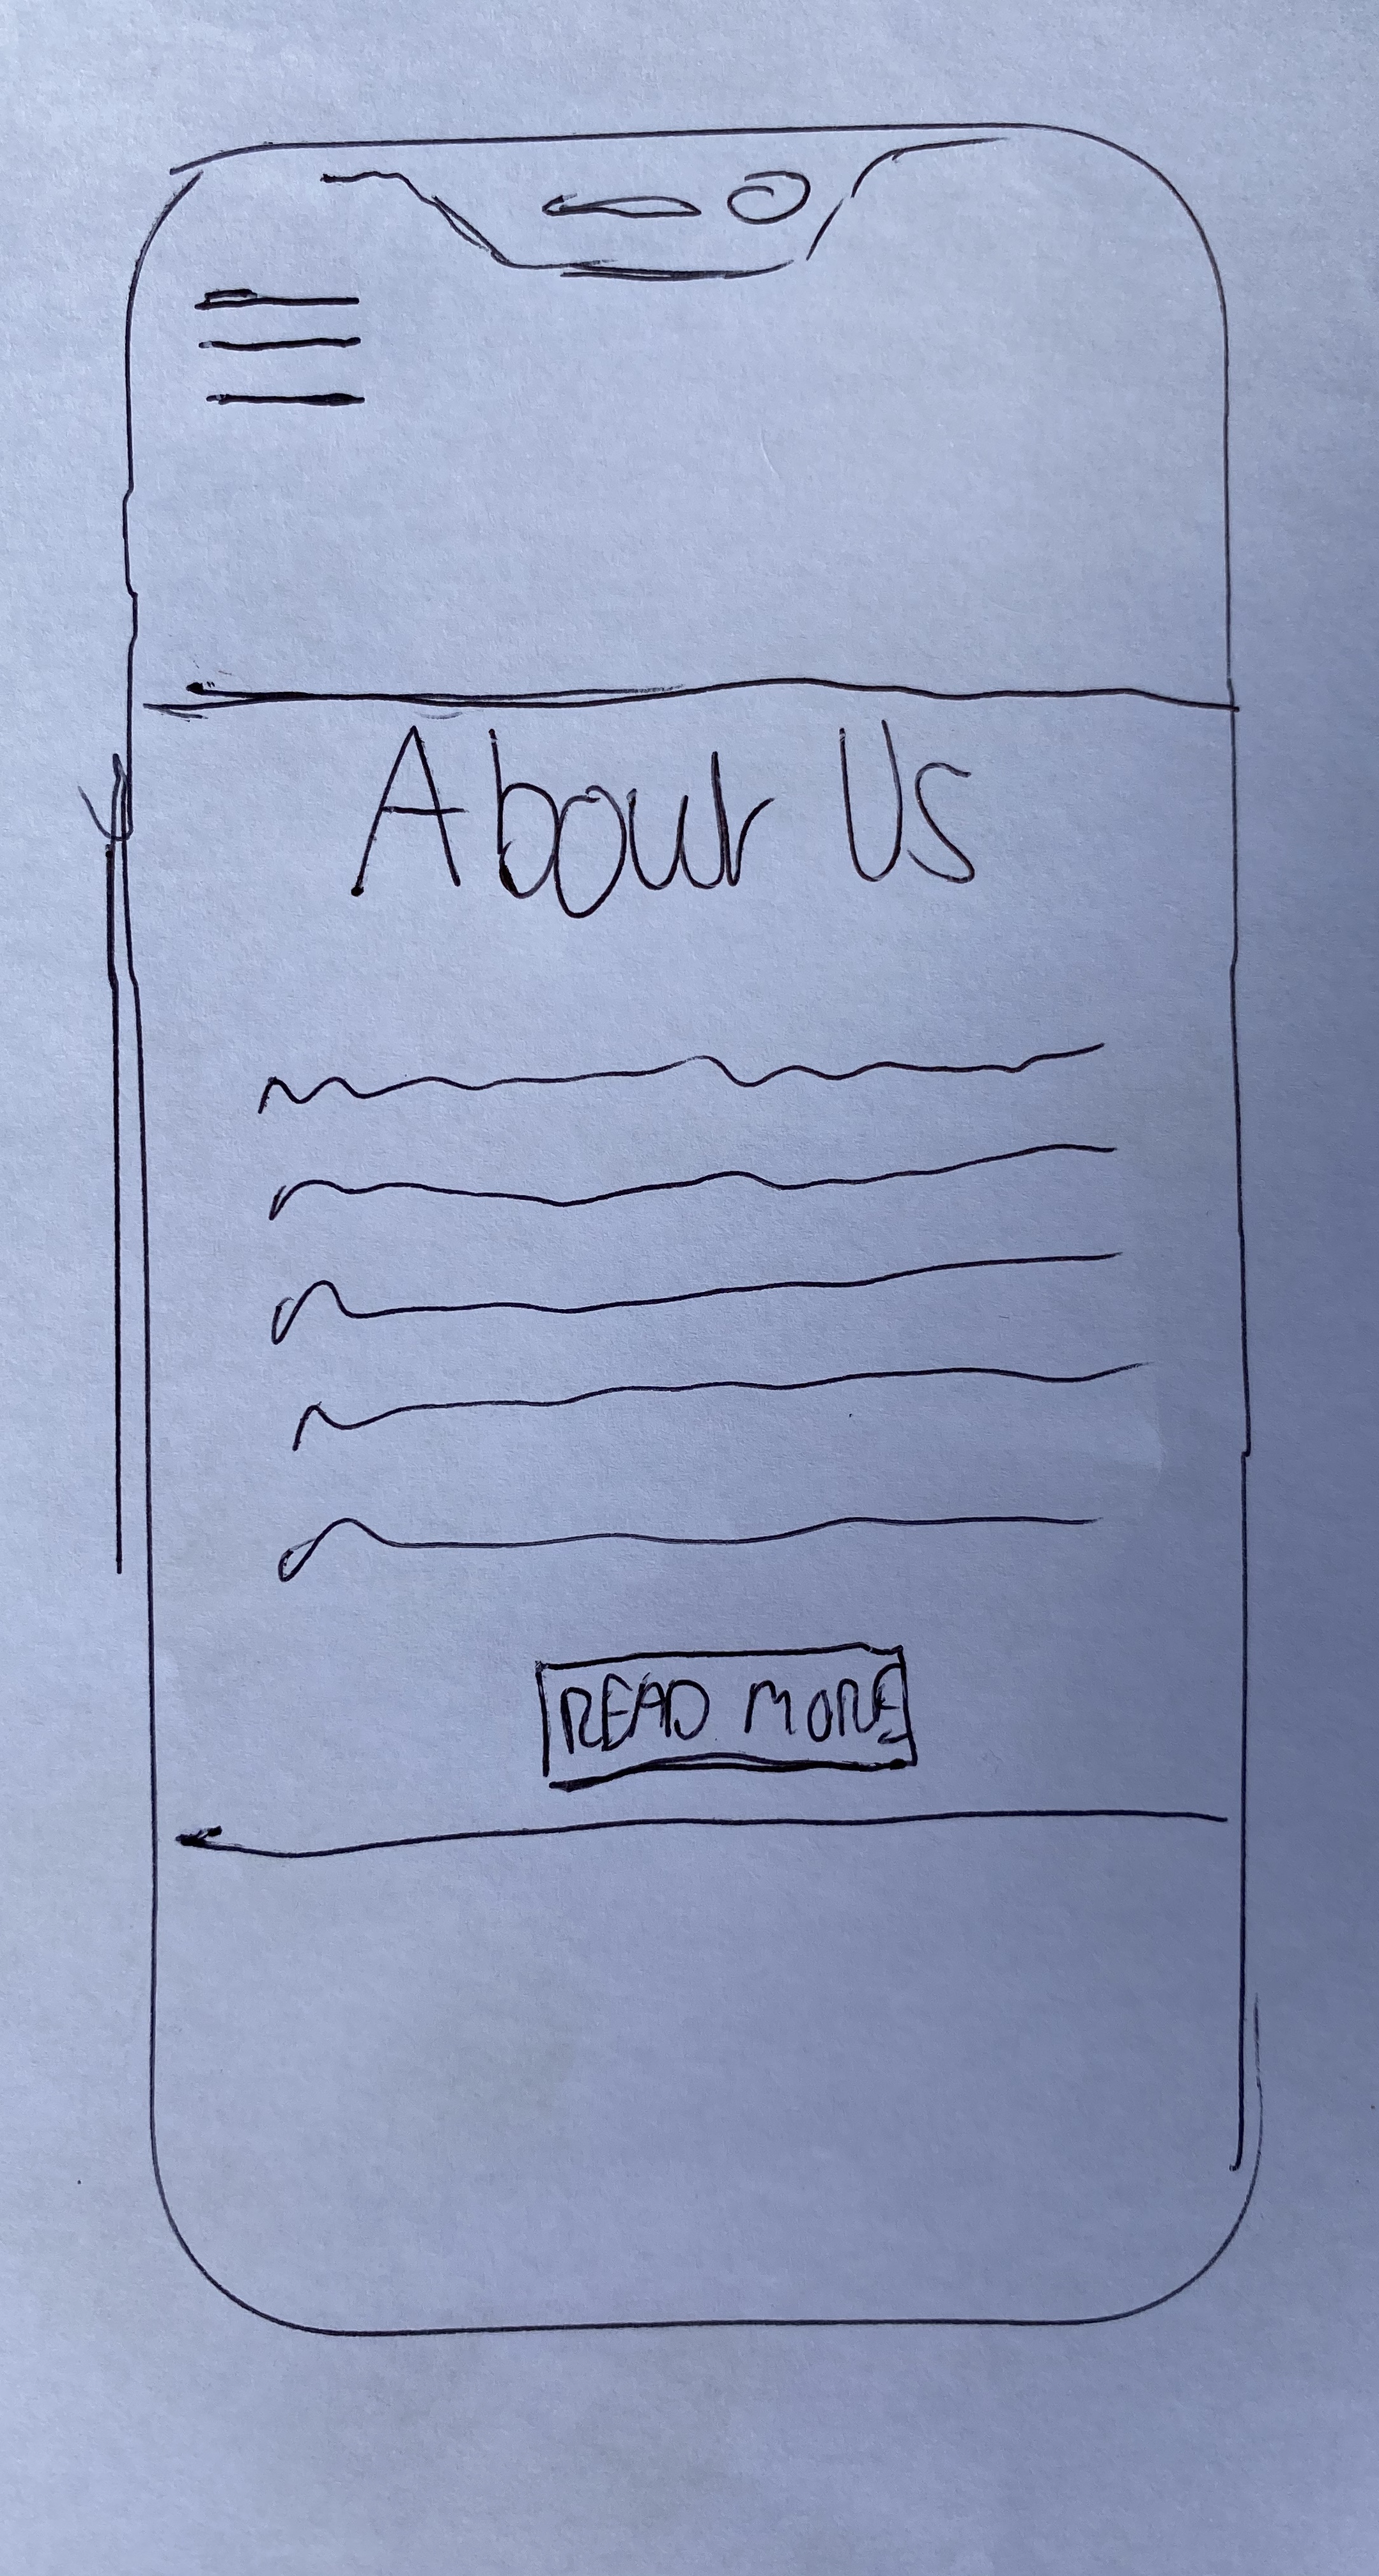 About Us
READ MORE